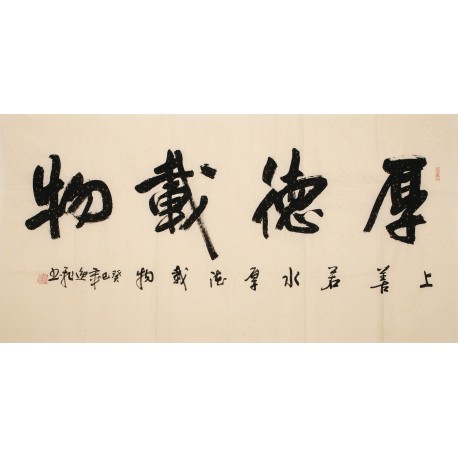 厚德載物
上善若水厚德載物 癸巳年